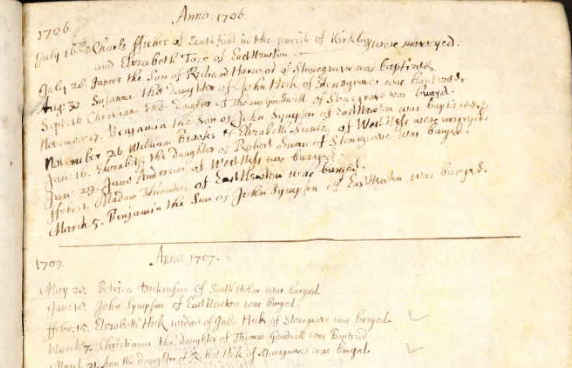 1706. Anno 1706.
July 16th Charls ffisher of Southfeild in the parish of Kirkby
and Elizabeth of East Newton were marryed.
July 28. James the Son of Richard Harwood of Stonegrave was baptized.
Aug. 20 Susanna the daughter of John Hick of Stonegrave was baptized.
Sept. 16 Christian the daughter of Thomas Goodwill of Stonegrave was buryed.
November 17. Benjamin the Son of John Sympson of East Newton was baptized.
November 26 William Brooks & Elizabeth of West Ness were marryed
Jan: 16. Elizabeth the daughter of Robert Swan of Stonegrave was buryed.
Jan: 29. Jane Anderson of West Ness was buryed.
ffebr: Madam of East Newton was buryed.
March 5. Benjamin the Son of John Sympson of East Newton was buryed.
1707. Anno 1707.
May 20. Peter Dickenson of South Holm was buryed.
June 10. John Sympson of East Newton was buryed.
ffebr. 15. Elizabeth Hick widow of Hick of Stonegrave was buryed.
March 7. Christiana the daughter of Thomas Goodwill was Baptized
March 21. Ann the daughter of Hick of Stonegrave was buryed.